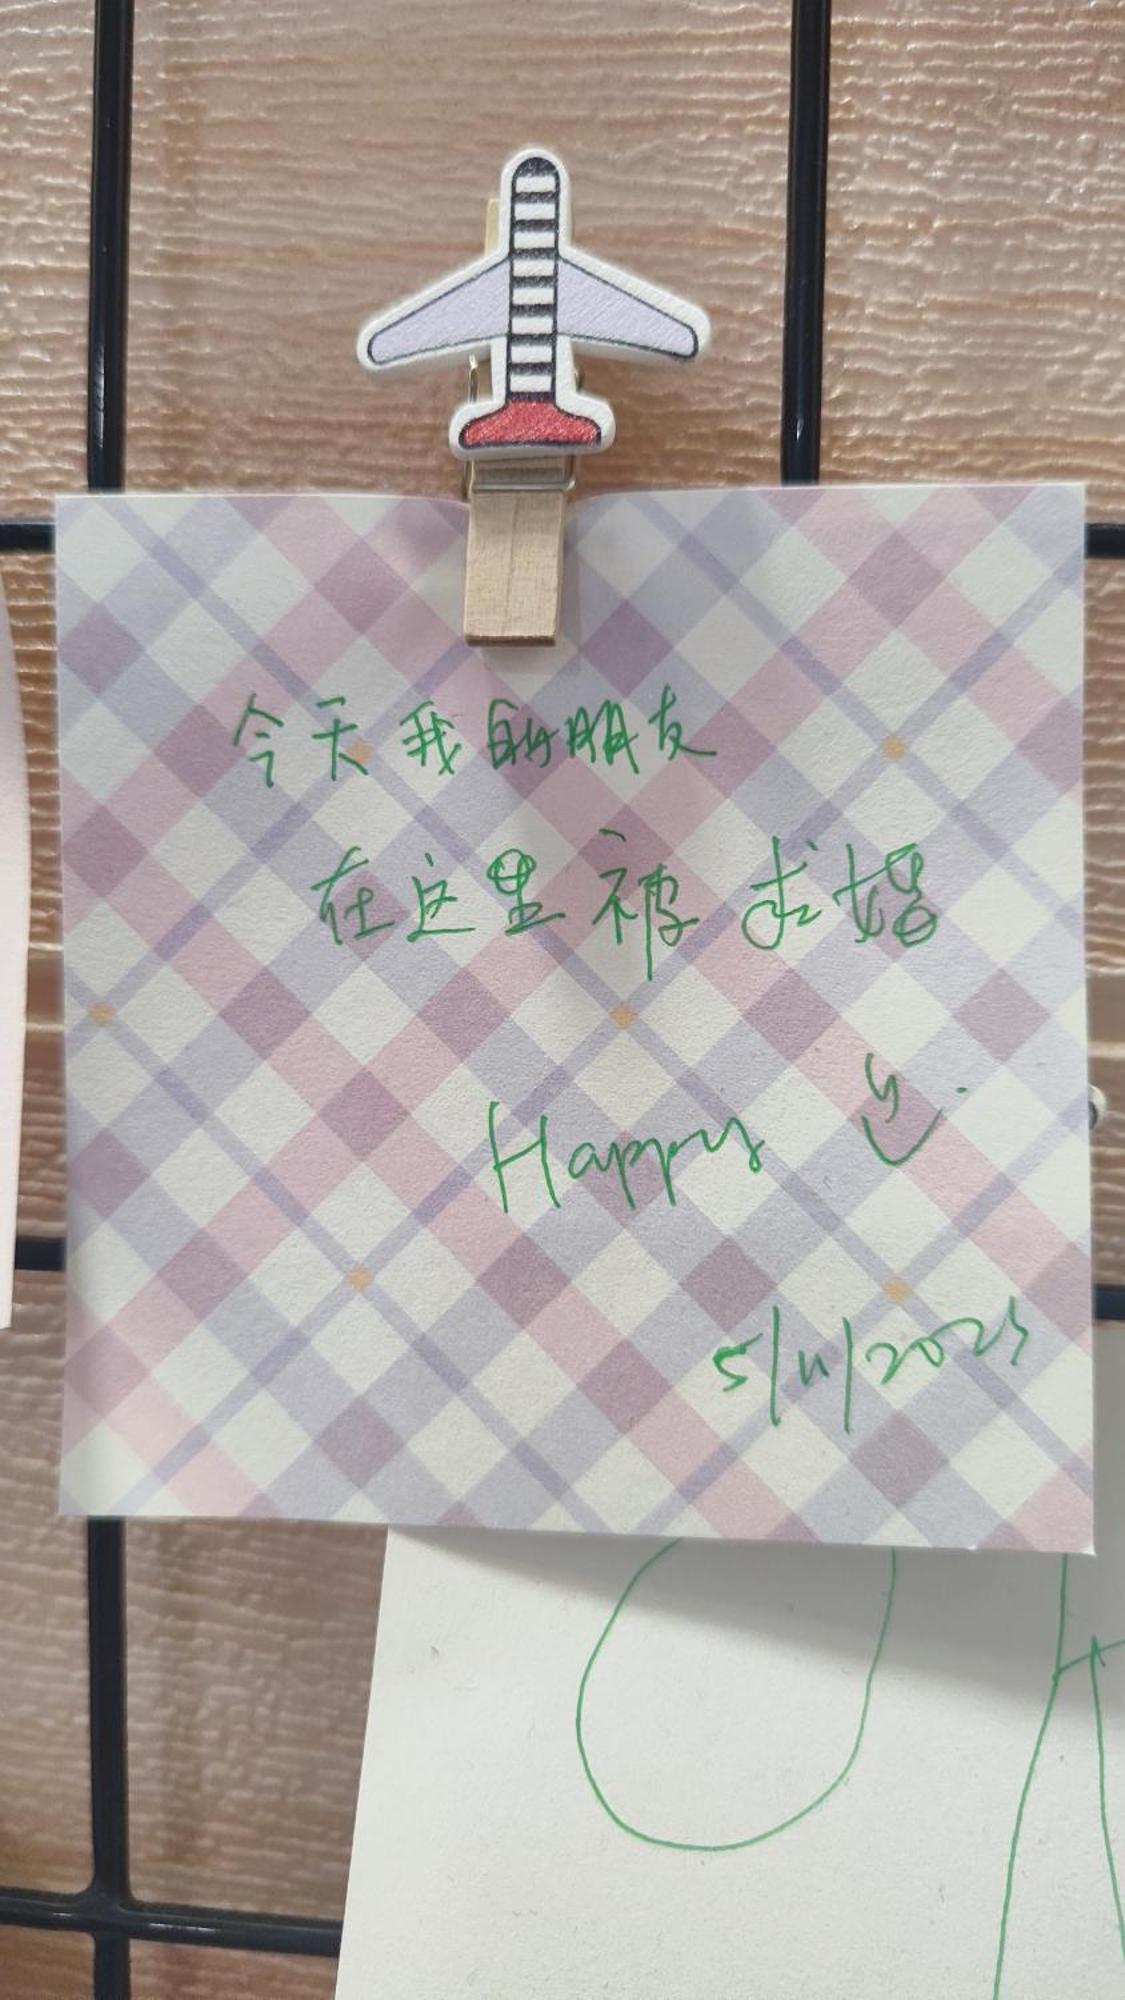 今天我的朋友
在这里被求婚
Happy
5/11/2023